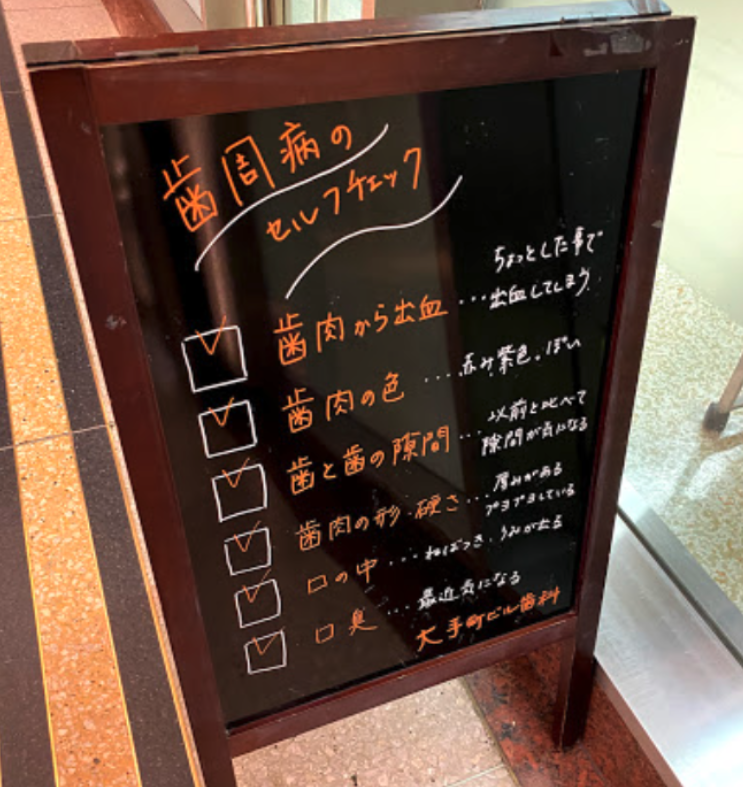 歯周病の
セルフチェック
歯肉から出血 ... ちょっとした事で
出血してしまう
歯肉の色 .... 赤み紫色っぽい
歯と歯の隙間 ... 以前と比べて
隙間が気になる
歯肉の形・硬さ ... 厚みがある
プヨプヨしている
口の中 ... ねばつき、うみが出る
口臭 ... 最近気になる
大手町ビル歯科